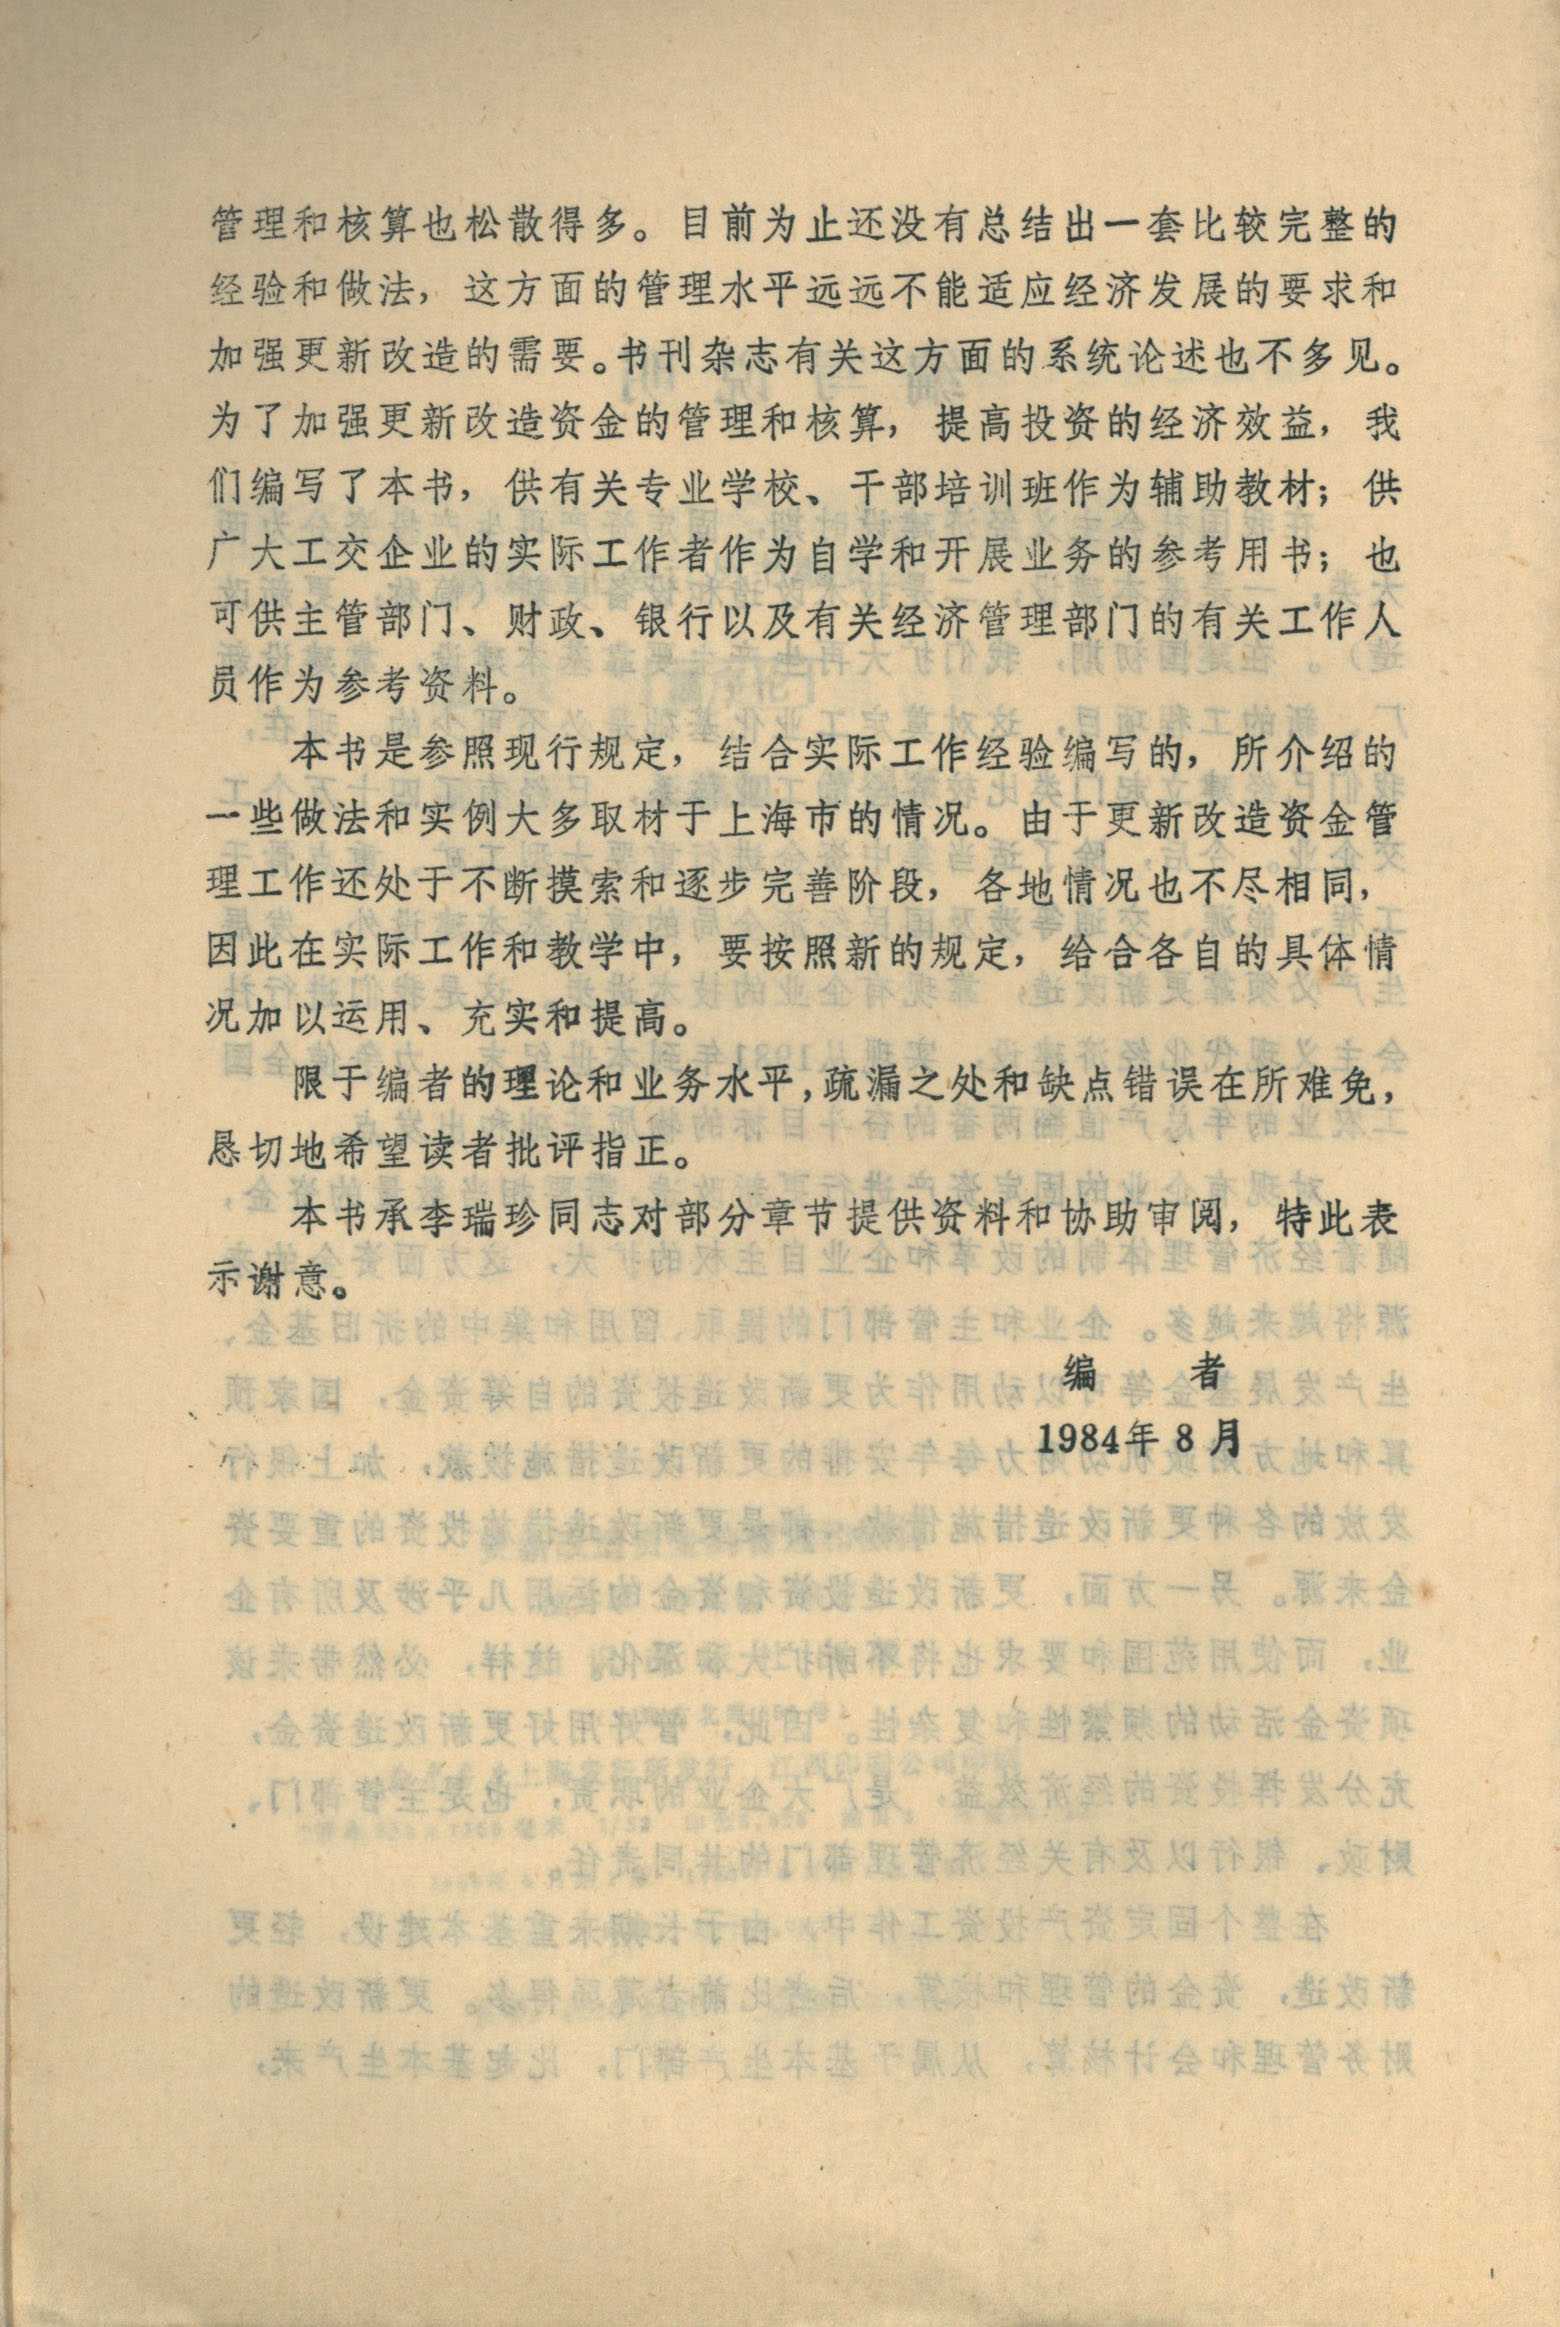 管理和核算也松散得多。目前为止还没有总结出一套比较完整的
经验和做法，这方面的管理水平远远不能适应经济发展的要求和
加强更新改造的需要。书刊杂志有关这方面的系统论述也不多见。
为了加强更新改造资金的管理和核算，提高投资的经济效益，我
们编写了本书，供有关专业学校、干部培训班作为辅助教材；供
广大工交企业的实际工作者作为自学和开展业务的参考用书；也
可供主管部门、财政、银行以及有关经济管理部门的有关工作人
员作为参考资料。
本书是参照现行规定，结合实际工作经验编写的，所介绍的
一些做法和实例大多取材于上海市的情况。由于更新改造资金管
理工作还处于不断摸索和逐步完善阶段，各地情况也不尽相同，
因此在实际工作和教学中，要按照新的规定，给合各自的具体情
况加以运用、充实和提高。
限于编者的理论和业务水平，疏漏之处和缺点错误在所难免，
恳切地希望读者批评指正。
本书承李瑞珍同志对部分章节提供资料和协助审阅，特此表
示谢意。
编 者
1984年8月